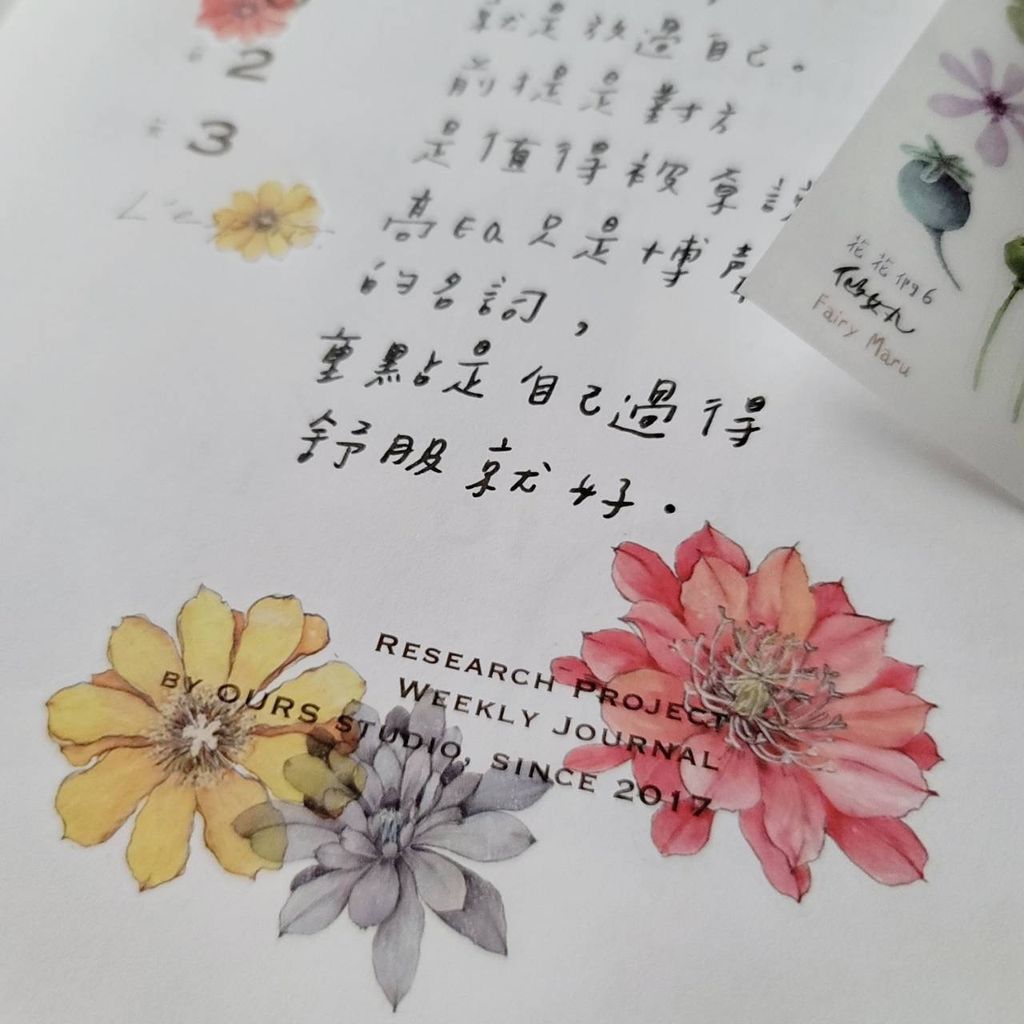 就是放過自己。
2
前提是對方
3
是值得被拿
高EQ只是博
的名詞，
重點是自己過得
舒服就好.
花花們6
Fairy Maru
RESEARCH PROJECT
WEEKLY JOURNAL
BY OURS STUDIO, SINCE 2017